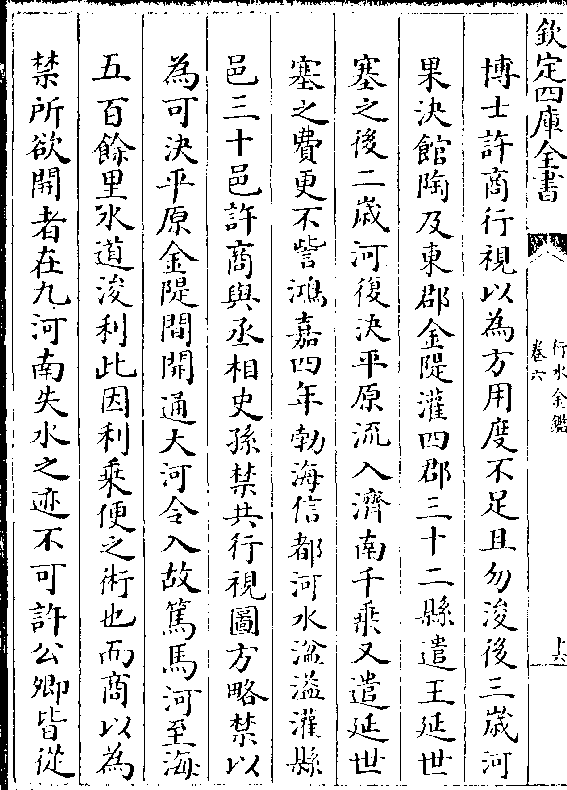 欽定四庫全書
行水金鑑
卷六
博士許商行視以為方用度不足且勿浚後三歲河
果決館陶及東郡金隄灌四郡三十二縣遣王延世
塞之後二歲河復決平原流入濟南千乗又遣延世
塞之費更不訾鴻嘉四年勃海信都河水湓溢灌縣
邑三十邑許商與丞相史孫禁共行視圖方略禁以
為可決平原金隄間開通大河令入故篤馬河至海
五百餘里水道浚利此因利乗便之術也而商以為
禁所欲開者在九河南失水之迹不可許公卿皆從